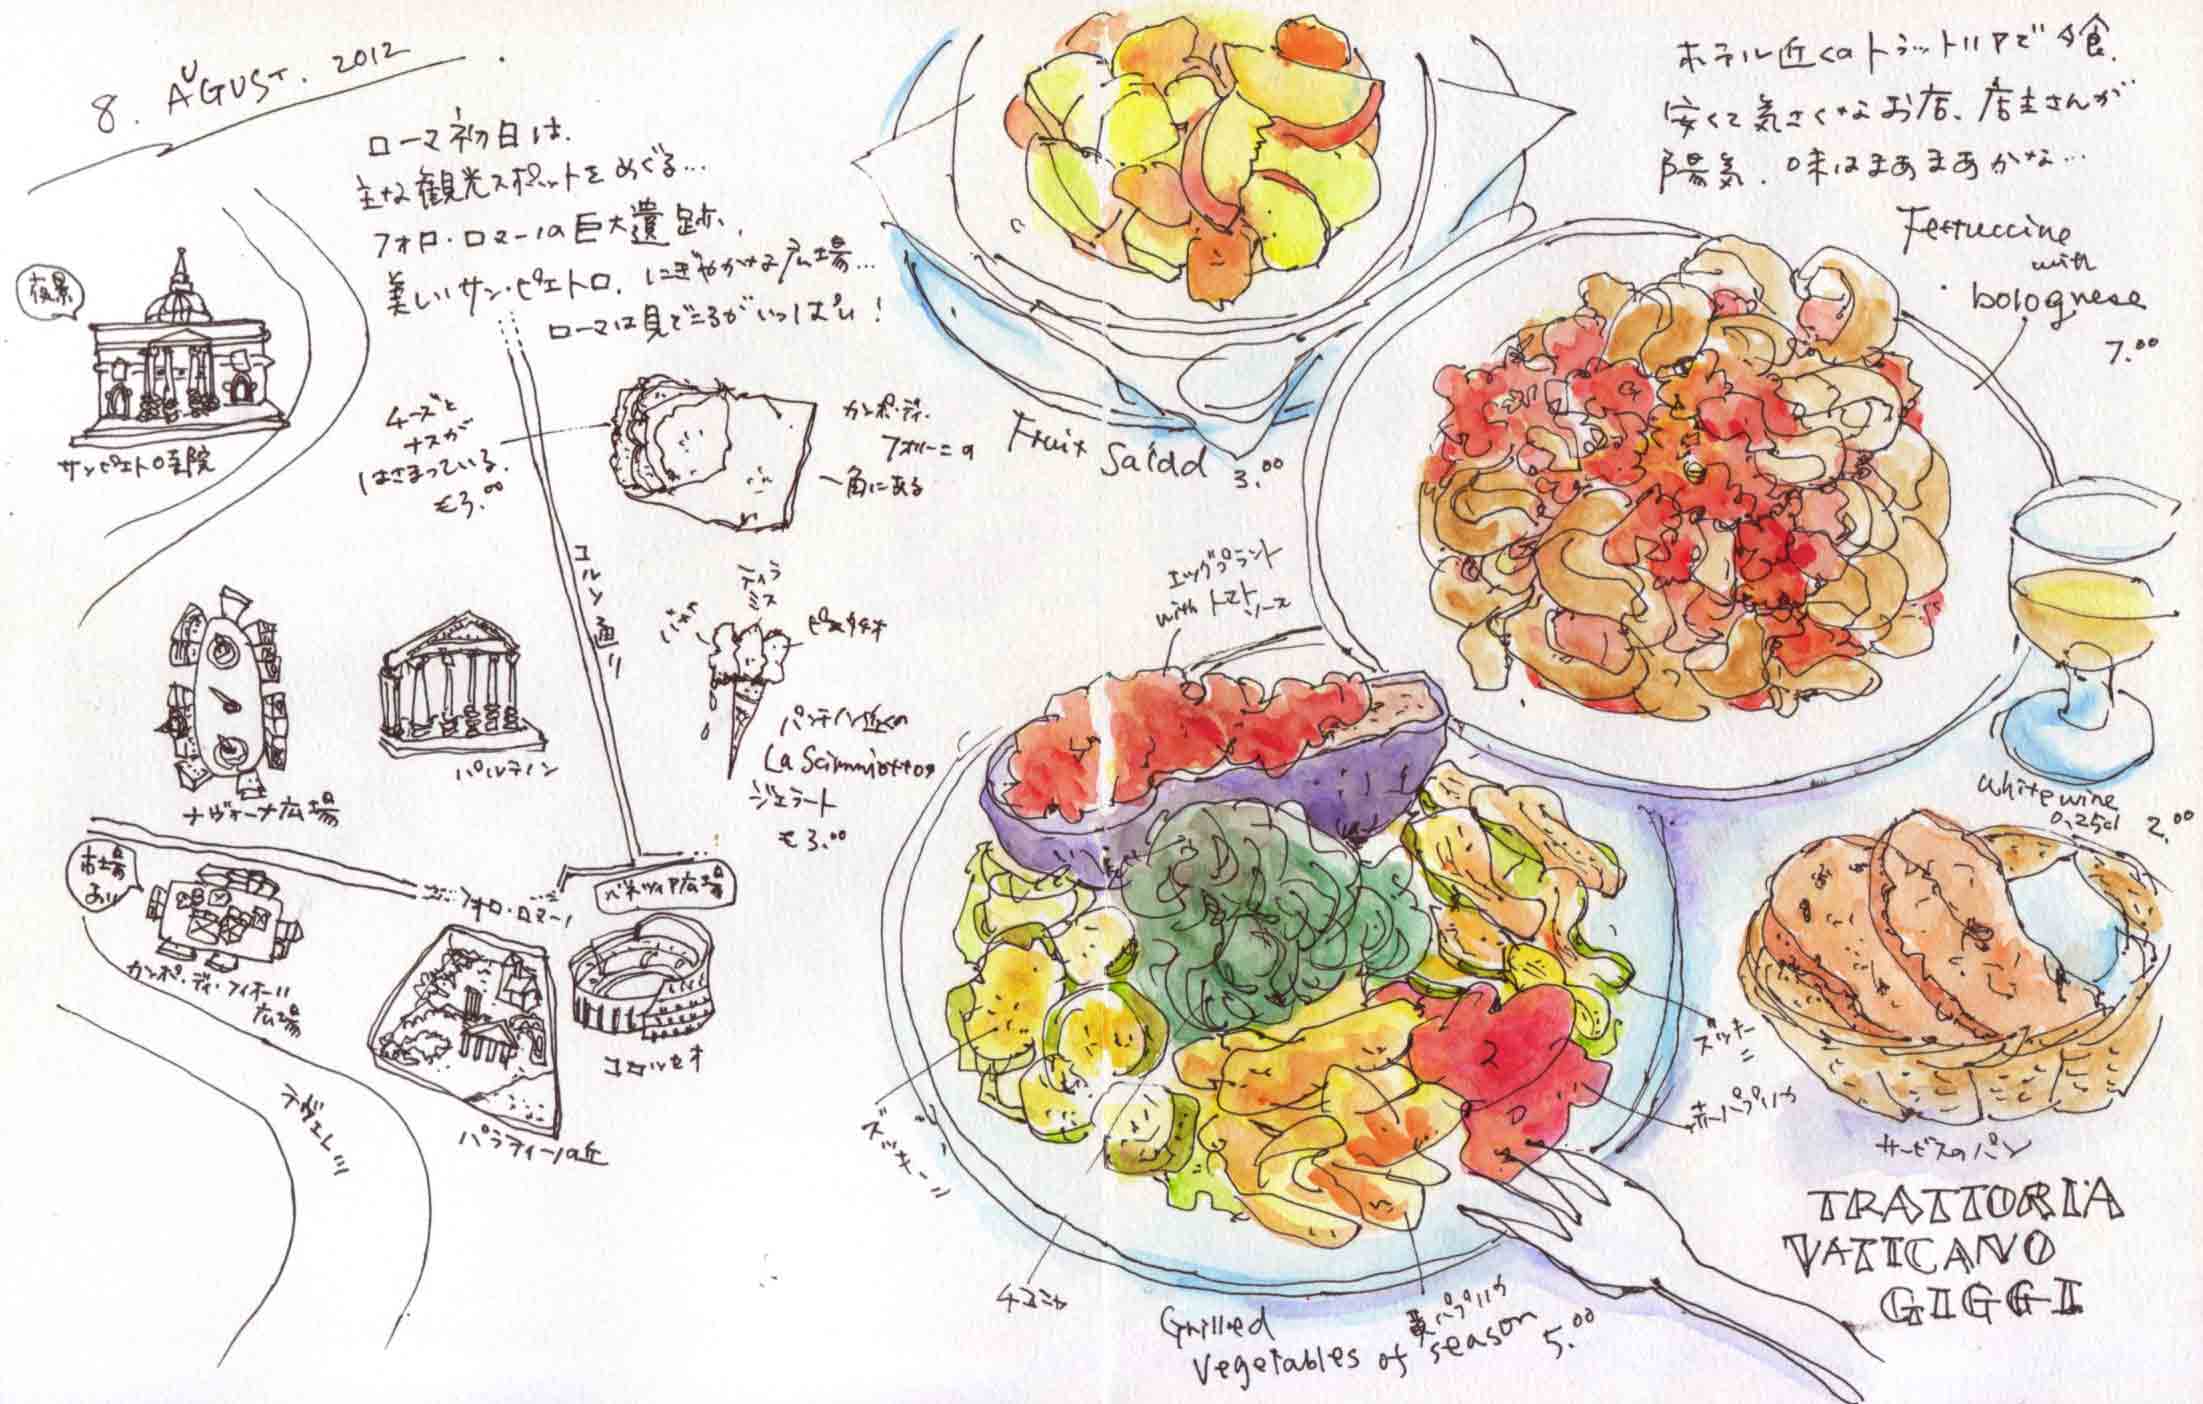 8. AUGUST. 2012
ローマ初日は、
主な観光スポットをめぐる…
フォロ・ロマーノの巨大遺跡、
美しいサン・ピエトロ、にぎやかな広場…
ローマは見どころがいっぱい!
夜景
サンピエトロ寺院
チーズと
ナスが
はさまっている。
€3.00
カンポ・ディ・
フィオーリの
一角にある
コルソ通り
ティラ
ミス
バナナ
ピスタチオ
パンテノン近くの
La Scimmiottoの
ジェラート
€3.00
ナヴォーナ広場
パルテノン
市場
あり
カンポ・ディ・フィオーリ
広場
フォロ・ロマーノ
ベネツィア広場
コロッセオ
パラティーノの丘
テヴェレ川
ホテル近くのトラットリアで夕食。
安くて気さくなお店、店主さんが
陽気、味はまあまあかな…
Fruit Salad 3.00
Fettuccine
with
bolognese
7.00
エッグプラント
with トマト
ソース
White wine
0,25cl 2.00
ズッキー
ニ
赤パプリカ
サービスのパン
ズッキーニ
チコニャ
黄パプリカ
Grilled
Vegetables of season 5.00
TRATTORIA
VATICANO
GIGGI